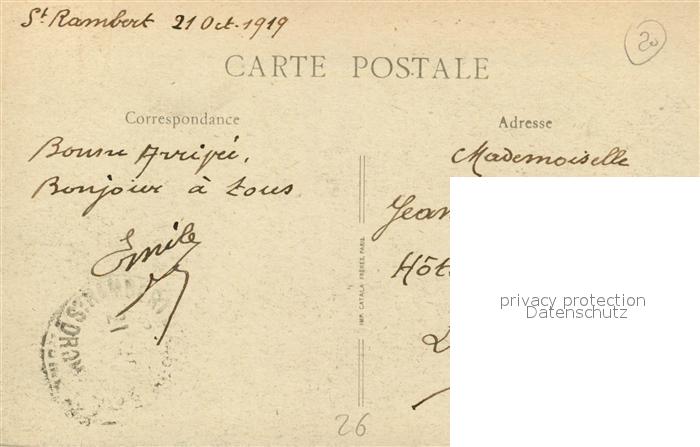 St Rambert 21 Oct. 1919
20
CARTE POSTALE
Correspondance
Bonne Arrivée,
Bonjour à tous
Emile
Adresse
Mademoiselle
Jean
Hôt
IMP. CATALA FRÈRES, PARIS
26
privacy protection
Datenschutz